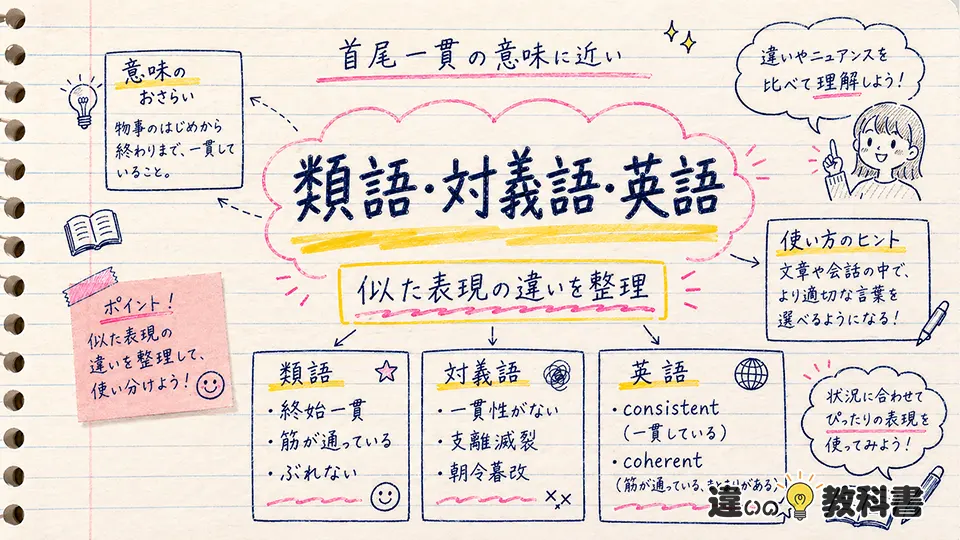 首尾一貫の意味に近い
類語・対義語・英語
似た表現の違いを整理
意味の
おさらい
物事のはじめから
終わりまで、一貫して
いること。
違いやニュアンスを
比べて理解しよう！
ポイント！
似た表現の
違いを整理して、
使い分けよう！
使い方のヒント
文章や会話の中で、
より適切な言葉を
選べるようになる！
類語
・終始一貫
・筋が通っている
・ぶれない
対義語
・一貫性がない
・支離滅裂
・朝令暮改
英語
・consistent
（一貫している）
・coherent
（筋が通っている、まとまりがある）
状況に合わせて
ぴったりの表現を
使ってみよう！
違いの教科書